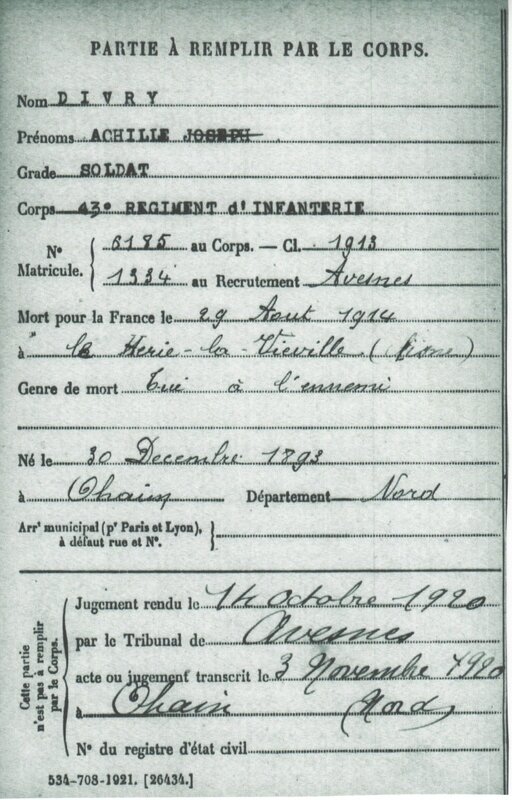 PARTIE À REMPLIR PAR LE CORPS.
Nom DIVRY
Prénoms ACHILLE JOSEPH
Grade SOLDAT
Corps 43e REGIMENT d'INFANTERIE
No Matricule. { 6185 au Corps. — Cl. 1913
1334 au Recrutement Avesnes
Mort pour la France le 29 Aout 1914
à le Herie-la-Vieville (Aisne)
Genre de mort Tué à l'ennemi
Né le 30 Decembre 1893
à Ohain Département Nord
Arrt municipal (pr Paris et Lyon),
à défaut rue et No.
Cette partie n'est pas à remplir par le Corps.
Jugement rendu le 14 octobre 1920
par le Tribunal de Avesnes
acte ou jugement transcrit le 3 Novembre 1920
à Ohain (Nord)
No du registre d'état civil
534-708-1921. [26434.]